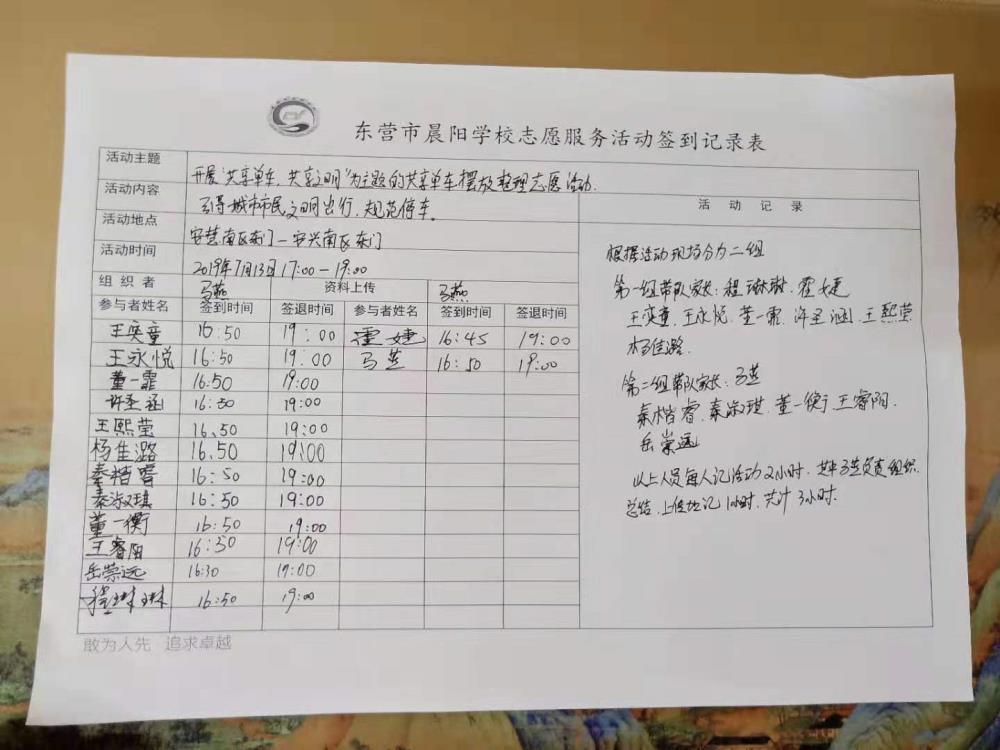 东营市晨阳学校志愿服务活动签到记录表
活动主题 开展"共享单车,共享文明"为主题的共享单车摆放整理志愿活动.
活动内容 引导城市市民文明出行,规范停车。
活动地点 安慧南区东门—安兴南区东门
活动时间 2019年7月13日 17:00—19:00
组织者 马燕 资料上传 马燕
参与者姓名 签到时间 签退时间 参与者姓名 签到时间 签退时间
王奕童 16:50 19:00 霍婕 16:45 19:00
王永悦 16:50 19:00 马燕 16:50 19:00
董一霏 16:50 19:00
许圣涵 16:50 19:00
王熙莹 16.50 19:00
杨佳潞 16.50 19:00
秦楷睿 16:50 19:00
秦淑琪 16:50 19:00
董一衡 16:50 19:00
王睿阳 16:50 19:00
岳崇远 16:30 19:00
程琳琳 16:50 19:00
活动记录
根据活动现场分为二组
第一组带队家长:程琳琳.霍婕
王奕童,王永悦,董一霏,许圣涵,王熙莹
杨佳潞.
第二组带队家长:马燕
秦楷睿,秦淑琪.董一衡,王睿阳.
岳崇远
以上人员每人记活动2小时.其中马燕负责组织.
总结,上传加记1小时.共计3小时.
敢为人先 追求卓越